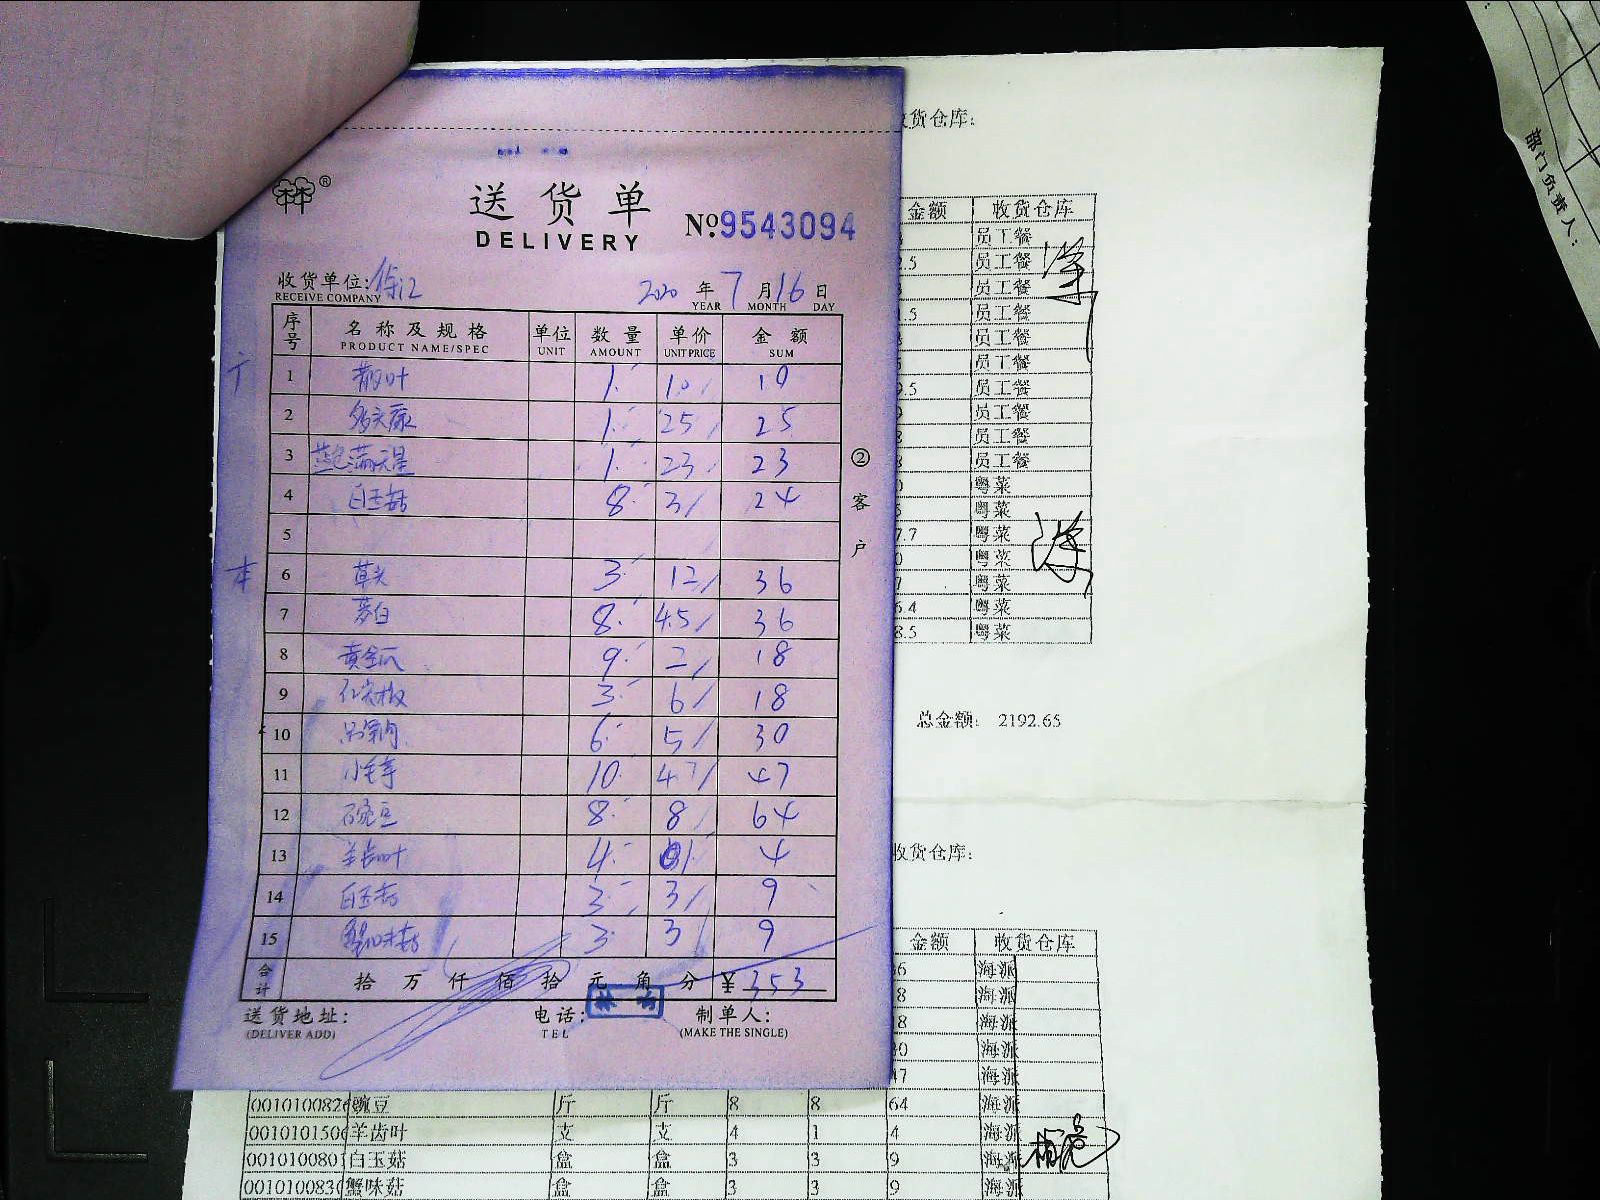 送货单
DELIVERY
№9543094
收货单位:
RECEIVE COMPANY
2020 年 7 月 16 日
YEAR MONTH DAY
序号 名称及规格 单位 数量 单价 金额
PRODUCT NAME/SPEC UNIT AMOUNT UNIT PRICE SUM
1 1 10 10
2 1 25 25
3 满天星 1 23 23
4 白玉菇 8 3 24
5
6 草头 3 12 36
7 茭白 8 4.5 36
8 黄金瓜 9 2 18
9 3 6 18
10 6 5 30
11 小毛芋 10 4.7 47
12 豌豆 8 8 64
13 羊齿叶 4 1 4
14 白玉菇 3 3 9
15 蟹味菇 3 3 9
合计 拾 万 仟 佰 拾 元 角 分 ¥353
送货地址:
(DELIVER ADD)
电话:
TEL
制单人:
(MAKE THE SINGLE)
②客户
收货仓库:
金额 收货仓库
员工餐
.5 员工餐
员工餐
.5 员工餐
员工餐
员工餐
9.5 员工餐
员工餐
员工餐
员工餐
粤菜
粤菜
7.7 粤菜
粤菜
粤菜
6.4 粤菜
8.5 粤菜
总金额: 2192.65
收货仓库:
金额 收货仓库
36 海派
18 海派
18 海派
30 海派
47 海派
0010100826 豌豆 斤 斤 8 8 64 海派
0010101506 羊齿叶 支 支 4 1 4 海派
001010080 白玉菇 盒 盒 3 3 9 海派
001010083 蟹味菇 盒 盒 3 3 9 海派
部门负责人: